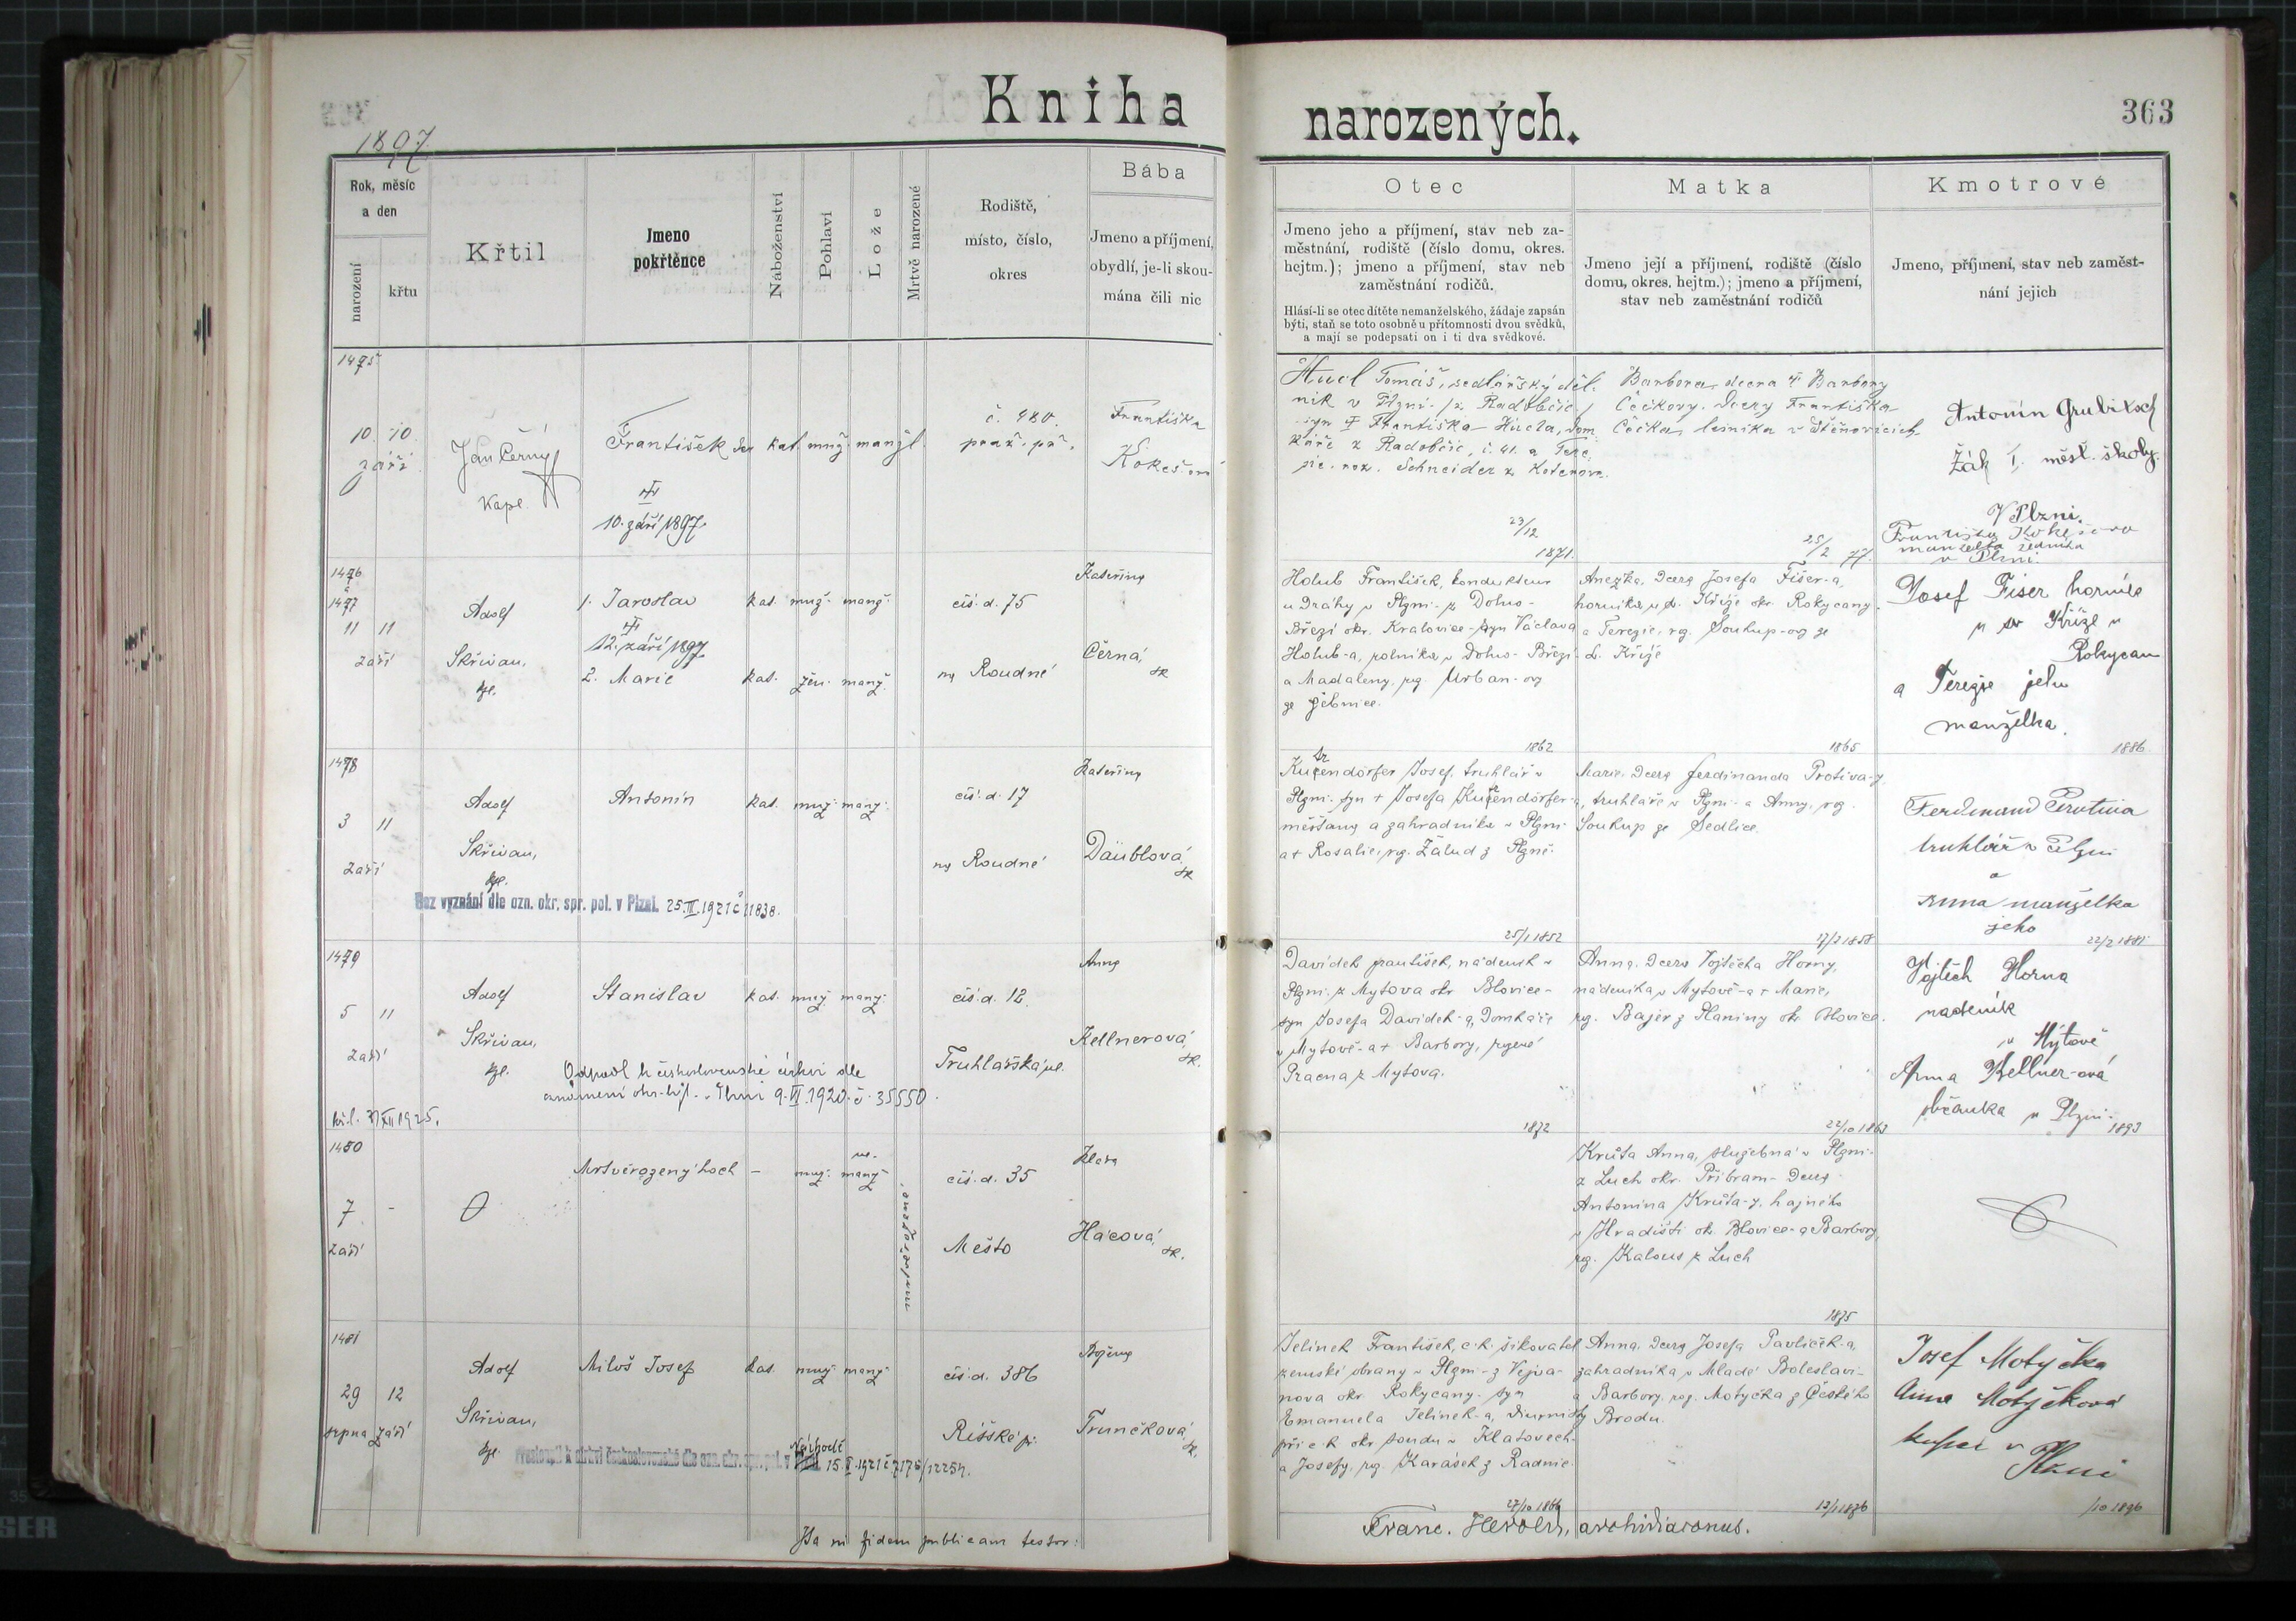 Kniha
narozených.
363
1897
Rok, měsíc
a den
narození
křtu
Křtil
Jmeno
pokřtěnce
Náboženství
Pohlaví
Lože
Mrtvě narozené
Rodiště,
místo, číslo,
okres
Bába
Jmeno a příjmení,
obydlí, je-li skou-
mána čili nic
Otec
Jmeno jeho a příjmení, stav neb za-
městnání, rodiště (číslo domu, okres.
hejtm.); jmeno a příjmení, stav neb
zaměstnání rodičů.
Hlásí-li se otec dítěte nemanželského, žádaje zapsán
býti, staň se toto osobně u přítomnosti dvou svědků,
a mají se podepsati on i ti dva svědkové.
Matka
Jmeno její a příjmení, rodiště (číslo
domu, okres. hejtm.); jmeno a příjmení,
stav neb zaměstnání rodičů
Kmotrové
Jmeno, příjmení, stav neb zaměst-
nání jejich
1475
10. 10.
září
Jan Černý
Kapl.
František
kat. muž. manžl.
10. září 1897.
č. 480.
praž. př.
Františka
Kokešová
Hucl Tomáš, sedlářský děl-
ník v Plzni z Radobčic,
syn Františka Hucla, dom
káře z Radobčic, č. 41. a Tere
zie roz. Schneider z Koterova.
23/12
1871.
Barbora, dcera Barbory
Čečkovy, dcery Františka
Čečka, lesníka v Štěnovicích
25/2 77.
Antonín Grubitsch
Žák I. měšť. školy.
V Plzni.
Františka Kokešova
manželka zedníka
v Plzni.
1476
1477
11 11
září
Adolf
Skřivan,
kpl.
1. Jaroslav
12. září 1897
2. Marie
kat. muž. manž.
kat. žen. manž.
čís. d. 75
na Roudné
Kateřina
Černá,
zk
Holub František, kondukteur
u dráhy v Plzni z Dolno-
Březí okr. Kralovice syn Václava
Holub-a, rolníka v Dolno-Březí
a Madaleny, rz. Urban-ov
ze Žebnice.
1862
Anežka, dcera Josefa Fišer-a,
horníka u sv. Kříže okr. Rokycany
a Terezie, rz. Soukup-ov ze
sv. Kříže
1865
Josef Fiser horník
u sv Kříže u
Rokycan
a Terezie jeho
manželka.
1886.
1478
3 11
září
Adolf
Skřivan,
kpl.
Antonín
kat. muž. manž.
čís. d. 17
na Roudné
Kateřina
Däublová,
zk
Bez vyznání dle ozn. okr. spr. pol. v Plzni. 25.III.1921 č 11838.
Kučendörfer Josef, truhlář v
Plzni syn + Josefa Kučendörfer-a,
měšťana a zahradníka v Plzni
a + Rosalie, rz. Žalud z Plzně.
25/1 1852
Marie, dcera Ferdinanda Protiva-y,
truhláře v Plzni a Anny, rz.
Soukup ze Sedlice.
17/2 1858
Ferdinand Protiva
truhlář v Plzni
a
Anna manželka
jeho
22/2 1881
1479
5 11
září
Adolf
Skřivan,
kpl.
Stanislav
kat. muž. manž.
čís. d. 12.
Truhlářská ul.
Anna
Kellnerová,
zk.
Odpadl k československé církvi dle
oznámení okr. hejt. v Plzni 9.VI.1920 č. 35550.
kř. l. 31/XII 1925.
Davídek František, nádeník v
Plzni z Mytova okr Blovice
syn Josefa Davídek-a, domkáře
v Mytově a + Barbory, rozené
Pracna z Mytova.
1872
Anna, dcera Vojtěcha Horny,
nádeníka v Mytově a + Marie,
rz. Bajer z Planiny okr. Blovice.
22/10 1863
Vojtěch Horna
nadenik
v Mýtově
Anna Kellner-ová
občanka v Plzni
1893
1480
7 -
září
Mrtvěrozený hoch -
muž.
ne-
manž
mrtvěrozeno.
čís. d. 35
Město
Klára
Hácová,
zk.
Kruta Anna, služebná v Plzni
z Luch okr. Příbram dcera
Antonína Kruta-y, hajného
v Hradišti okr Blovice a Barbory,
rz. Kalous z Luch
1875
1481
29 12
srpna září
Adolf
Skřivan,
kpl.
Miloš Josef
kat. muž manž
čís. d. 386
Říšské př.
Božena
Trunčková,
zk.
Přestoupil k církvi československé dle ozn. okr. spr. pol. v Plzni
Náchodě
15.I.1921 č 7176/12254.
Jelinek František, c.k. šikovatel
zemské obrany v Plzni z Vejva-
nova okr Rokycany syn
Emanuela Jelínek-a, diurnisty
při c.k okr soudu v Klatovech
a Josefy, rz. Karásek z Radnic.
27/10 1866
Anna, dcera Josefa Pavlíček-a,
zahradníka v Mladé Boleslavi
a Barbory, rz. Motyčka z Českého
Brodu.
13/1 1876
Josef Motyčka
Anna Motyčková
kupec v
Plzni
/10 1896
Ita ni fidem publicam testor:
Franc. Herold, archidiaconus.